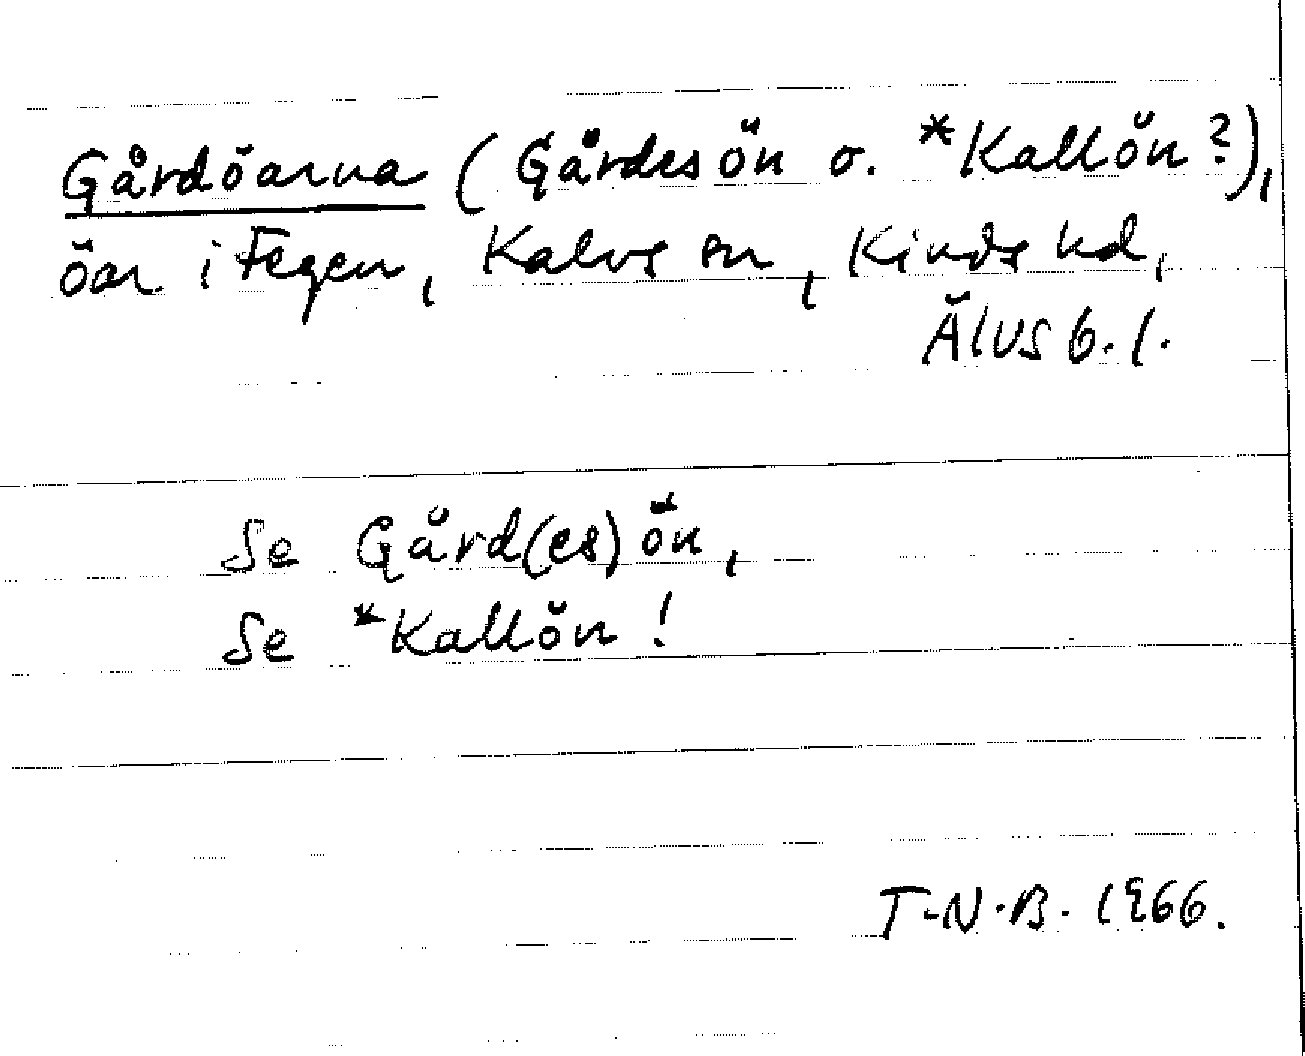 Gårdöarna (Gårdesön o. *Kallön?),
öar i Fegen, Kalvs sn, Kinds hd,
Älvsb. l.
Se Gård(es)ön,
Se *Kallön!
T.N.B. 1966.